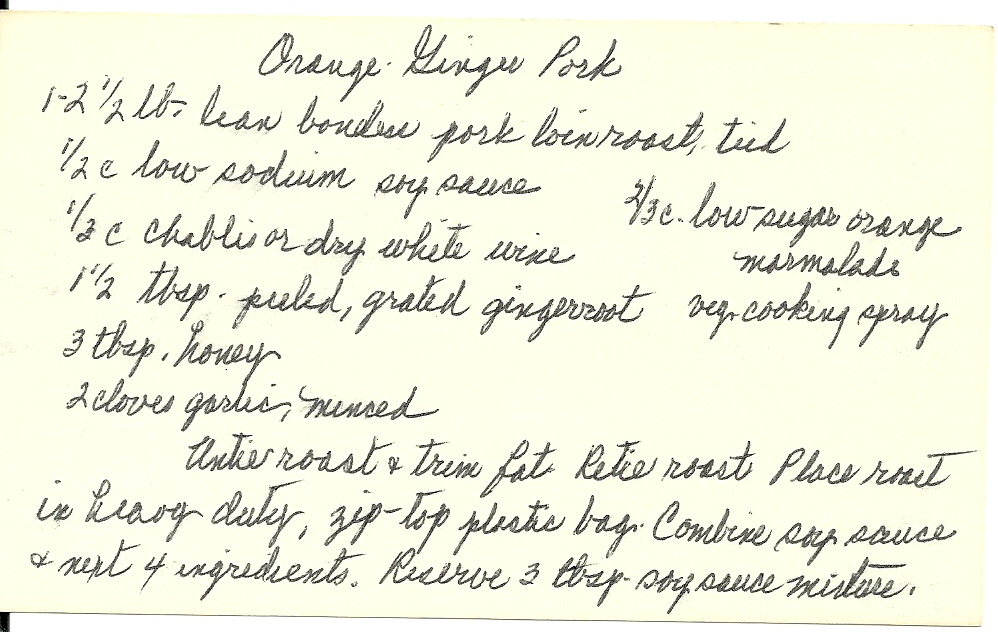 Orange-Ginger Pork
1-2 1/2 lb. lean boneless pork loin roast, tied
1/2 c low sodium soy sauce
1/3 c chablis or dry white wine
1 1/2 tbsp. peeled, grated gingerroot
3 tbsp. honey
2 cloves garlic, minced
2/3 c. low-sugar orange
marmalade
veg. cooking spray
Untie roast & trim fat. Retie roast. Place roast
in heavy duty, zip-top plastic bag. Combine soy sauce
& next 4 ingredients. Reserve 3 tbsp. soy sauce mixture.